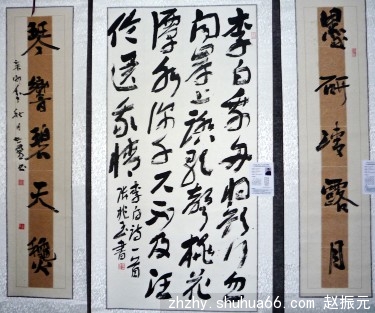 墨研清露月
李白乘舟将欲行忽
闻岸上踏歌聲桃花
潭水深千尺不及汪
伦送我情
李白诗一首
琴響碧天龝
zhzhy.shuhua66.com 赵振元